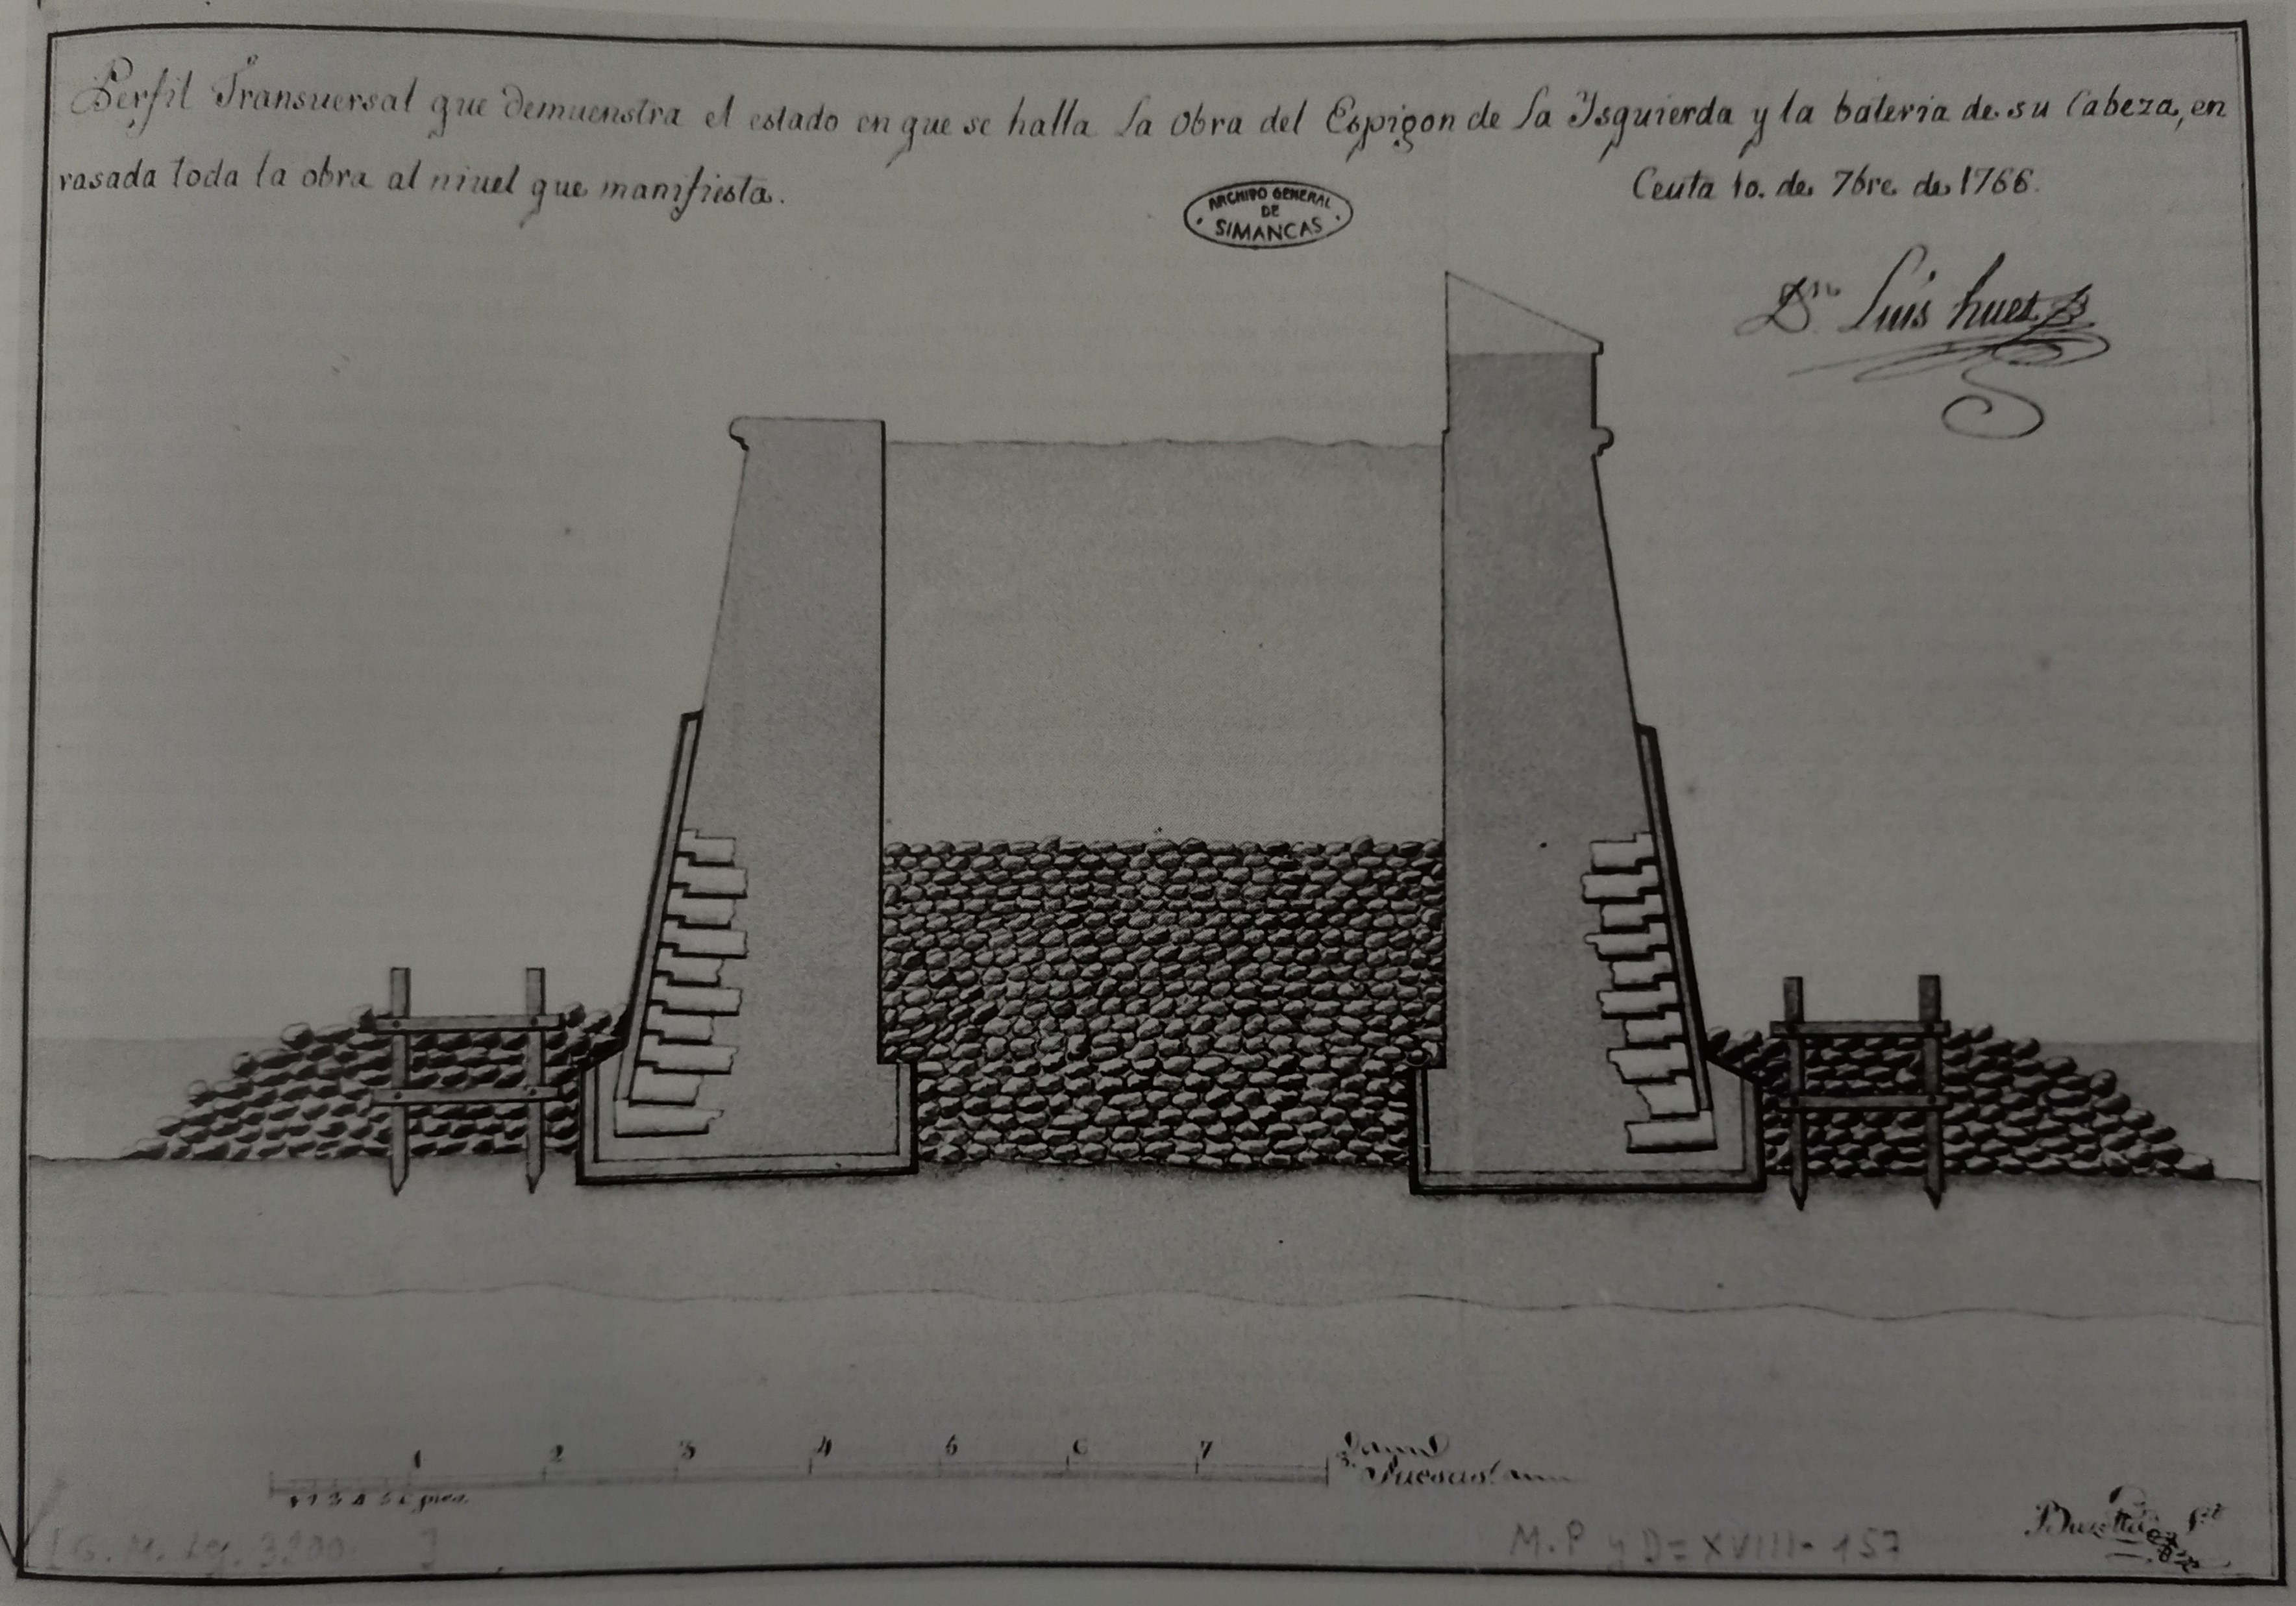 Perfil Transuersal que demuenstra el estado en que se halla la obra del Espigon de la Ysquierda y la bateria de su Cabeza, en
rasada toda la obra al niuel que manifiesta.
Ceuta 10. de 7bre de 1766.
ARCHIVO GENERAL
DE
SIMANCAS
Dn Luis huet
1 2 3 4 5 6 7
1 2 3 4 5 6 pies.
M.P y D = XVIII - 157